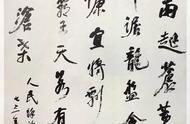 雨起蒼黃
踞龍盤今
慷宜將剩
霸王天若有
滄桑
人民解放